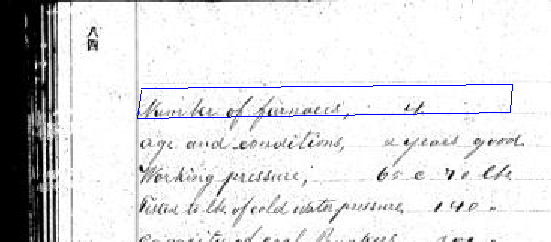 八四
Number of furnaces, 4.
age and conditions, 2 years good
Working pressure; 65 @ 70 lbs
Tested to lbs of cold water pressure, 140 "
capacity of coal Bunkers